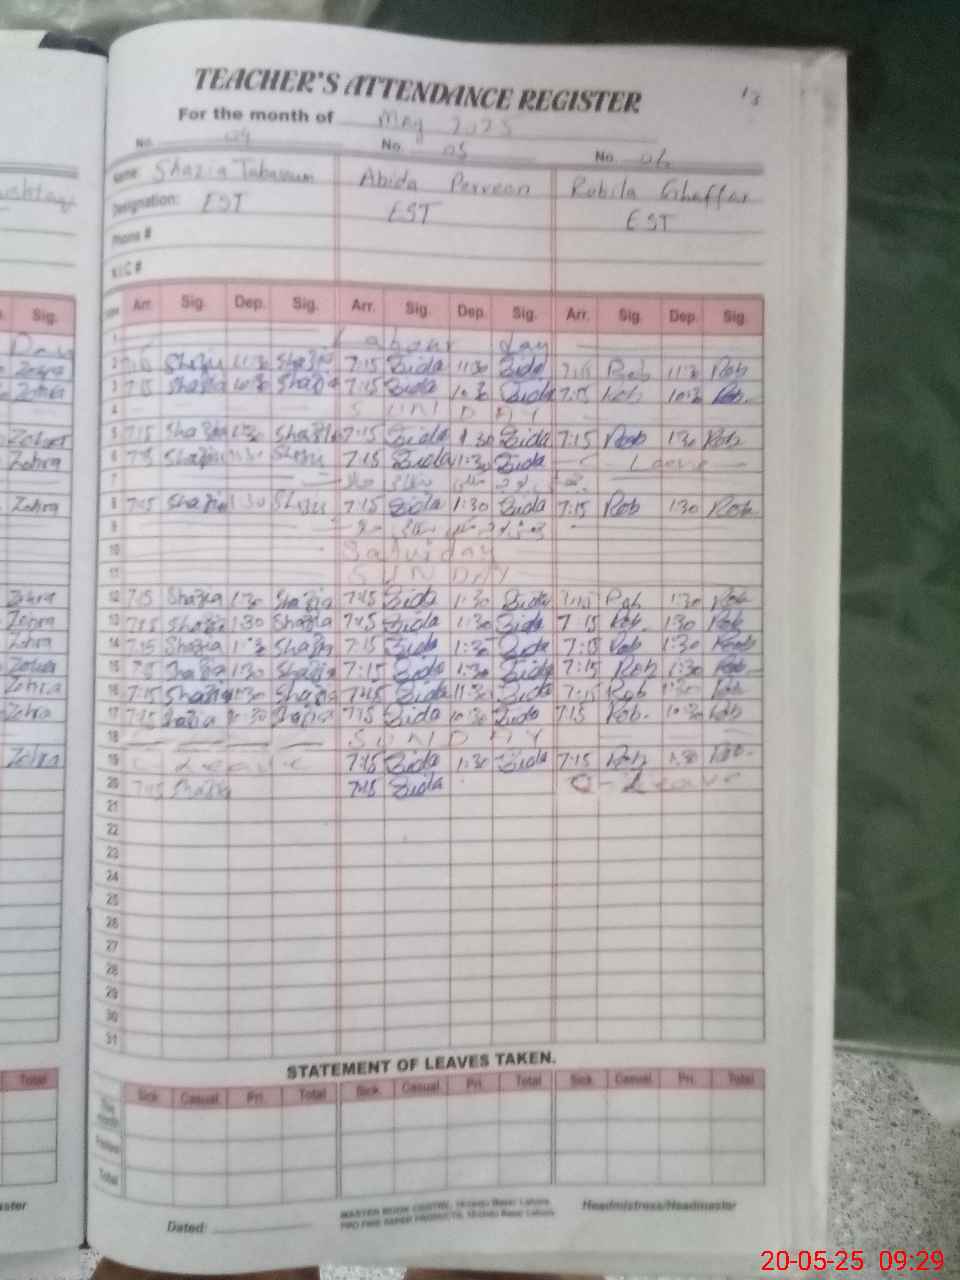 TEACHER'S ATTENDANCE REGISTER
13
For the month of May 2025
No. 04 No. 05 No. 06
Name: Shazia Tabassum Abida Perveen Rubila Ghaffar
Designation: EST EST EST
Phone #
N.I.C #
Sig. Date Arr. Sig. Dep. Sig. Arr. Sig. Dep. Sig. Arr. Sig. Dep. Sig.
1 Labour day
Zohra 2 7:15 Shazia 11:30 Shazia 7:15 Zida 11:30 Zida 7:15 Rob 11:30 Rob
Zohra 3 7:15 Shazia 10:30 Shazia 7:15 Zida 10:30 Zida 7:15 Rob 10:30 Rob.
4 SUNDAY
Zohra 5 7:15 Shazia 1:30 Shazia 7:15 Zida 1:30 Zida 7:15 Rob 1:30 Rob
Zohra 6 7:15 Shazia 1:30 Shazia 7:15 Zida 1:30 Zida - Leave -
7
Zohra 8 7:15 Shazia 1:30 Shazia 7:15 Zida 1:30 Zida 7:15 Rob 1:30 Rob.
9
10 Saturday
11 SUNDAY
Zohra 12 7:15 Shazia 1:30 Shazia 7:15 Zida 1:30 Zida 7:15 Rob 1:30 Rob
Zohra 13 7:15 Shazia 1:30 Shazia 7:15 Zida 1:30 Zida 7:15 Rob. 1:30 Rob
Zohra 14 7:15 Shazia 1:30 Shazia 7:15 Zida 1:30 Zida 7:15 Rob 1:30 Rob
Zohra 15 7:15 Shazia 1:30 Shazia 7:15 Zida 1:30 Zida 7:15 Rob 1:30 Rob
Zohra 16 7:15 Shazia 1:30 Shazia 7:15 Zida 11:30 Zida 7:15 Rob 1:30 Rob
Zohra 17 7:15 Shazia 10:30 Shazia 7:15 Zida 10:30 Zida 7:15 Rob. 10:30 Rob
18 SUNDAY
Zohra 19 Leave 7:15 Zida 1:30 Zida 7:15 Rob 1:30 Rob.
20 7:15 Shazia 7:15 Zida C - Leave
21
22
23
24
25
26
27
28
29
30
31
STATEMENT OF LEAVES TAKEN.
Total Sick Casual Pri. Total Sick Casual Pri. Total Sick Casual Pri. Total
Total
Dated: MASTER BOOK CENTRE, Headmistress/Headmaster
20-05-25 09:29